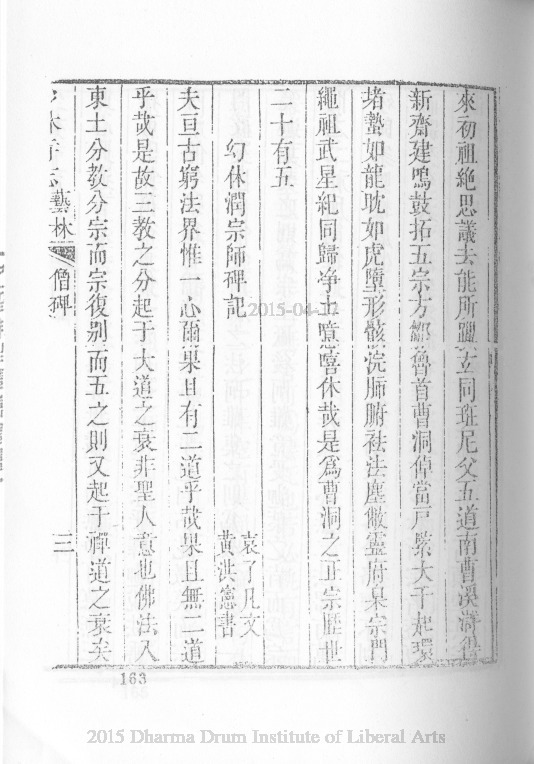 來初祖絶思議去能所躐玄同班尼父五道南曹溪
新齋建鳴鼓拓五宗方鄒魯首曹洞倬當戸繄大千起環
堵蟄如龍眈如虎墮形骸浣肺腑袪法塵敞靈府杲宗門
繩祖武星紀同歸净土噫嘻休哉是爲曹洞之正宗歷世
二十有五
幻休潤宗師碑記
袁了凡文
黄洪憲書
夫亘古窮法界惟一心爾果且有二道乎哉果且無二道
乎哉是故三教之分起于大道之衰非聖人意也佛法入
東土分教分宗而宗復别而五之則又起于禪道之衰矣
少林寺志 藝林 僧碑 三
163
2015-04-17
2015 Dharma Drum Institute of Liberal Arts